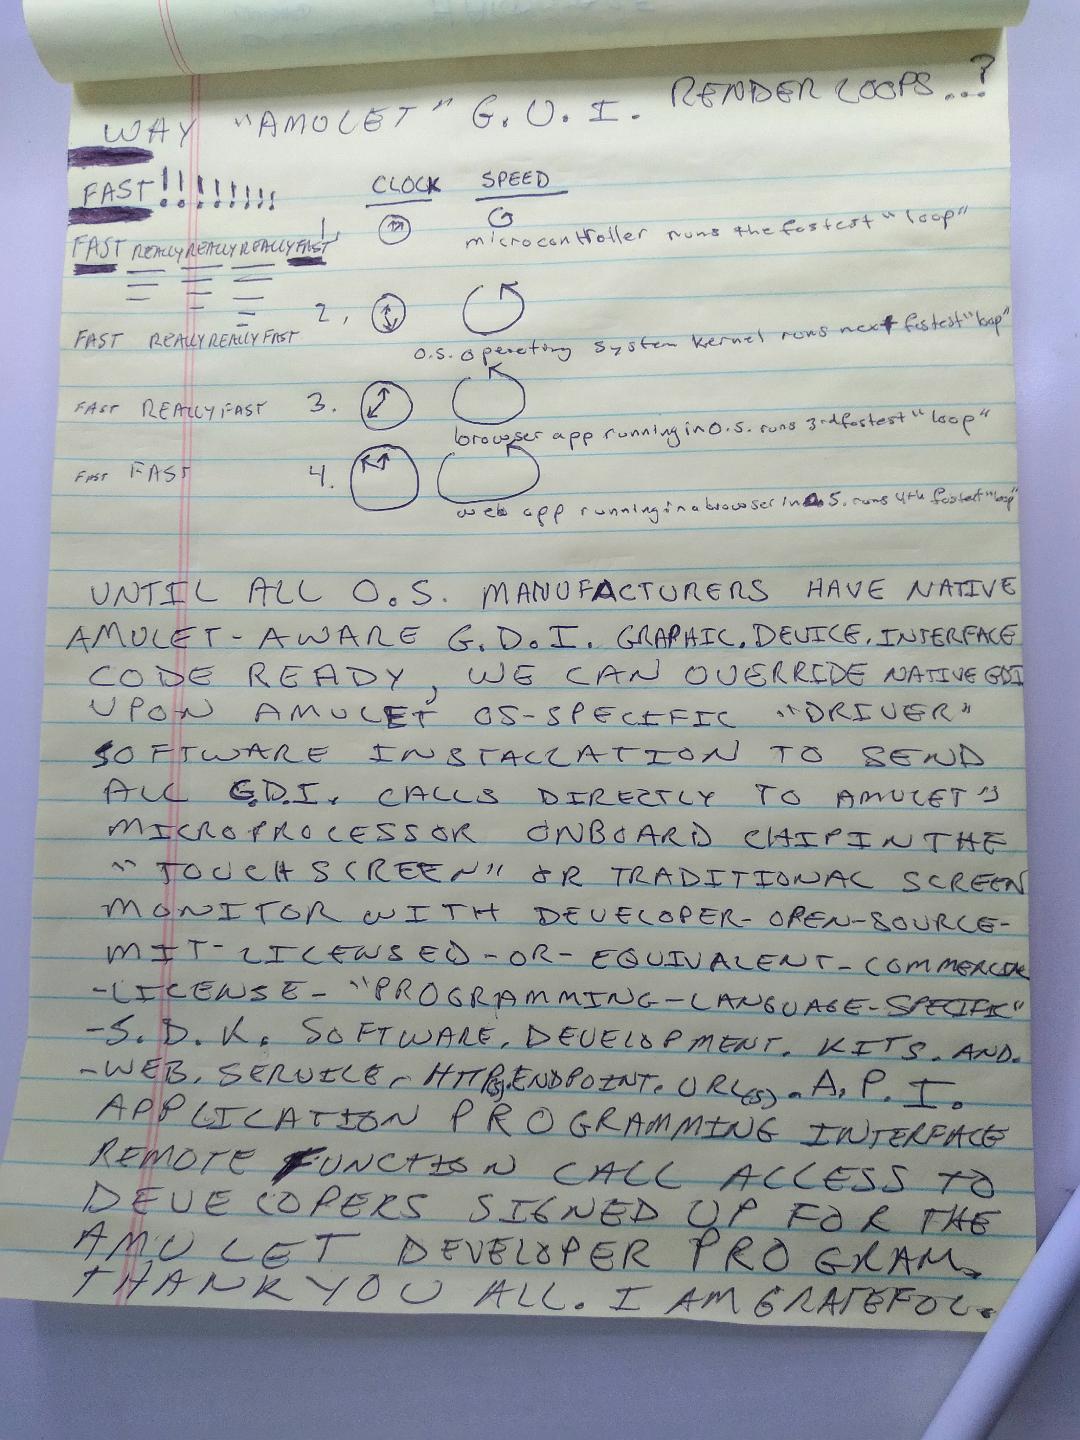 WAY "AMULET" G.U.I. RENDER LOOPS...?
FAST!!!!!!!!! CLOCK SPEED
FAST REALLY REALLY REALLY FAST 1. microcontroller runs the fastest "loop"
FAST REALLY REALLY FAST 2. O.S. operating system kernel runs next fastest "loop"
FAST REALLY FAST 3. browser app running in O.S. runs 3rd fastest "loop"
FAST FAST 4. web app running in a browser in O.S. runs 4th fastest "loop"
UNTIL ALL O.S. MANUFACTURERS HAVE NATIVE
AMULET-AWARE G.D.I. GRAPHIC.DEVICE.INTERFACE
CODE READY, WE CAN OVERRIDE NATIVE GDI
UPON AMULET OS-SPECIFIC "DRIVER"
SOFTWARE INSTALLATION TO SEND
ALL G.D.I. CALLS DIRECTLY TO AMULET'S
MICROPROCESSOR ONBOARD CHIP IN THE
"TOUCH SCREEN" OR TRADITIONAL SCREEN
MONITOR WITH DEVELOPER-OPEN-SOURCE-
MIT-LICENSED-OR-EQUIVALENT-COMMERCIAL
-LICENSE-"PROGRAMMING-LANGUAGE-SPECIFIC"
-S.D.K. SOFTWARE.DEVELOPMENT.KITS.AND.
-WEB.SERVICE-HTTP(S).ENDPOINT.URL(S).A.P.I.
APPLICATION PROGRAMMING INTERFACE
REMOTE FUNCTION CALL ACCESS TO
DEVELOPERS SIGNED UP FOR THE
AMULET DEVELOPER PROGRAM.
THANK YOU ALL. I AM GRATEFUL.